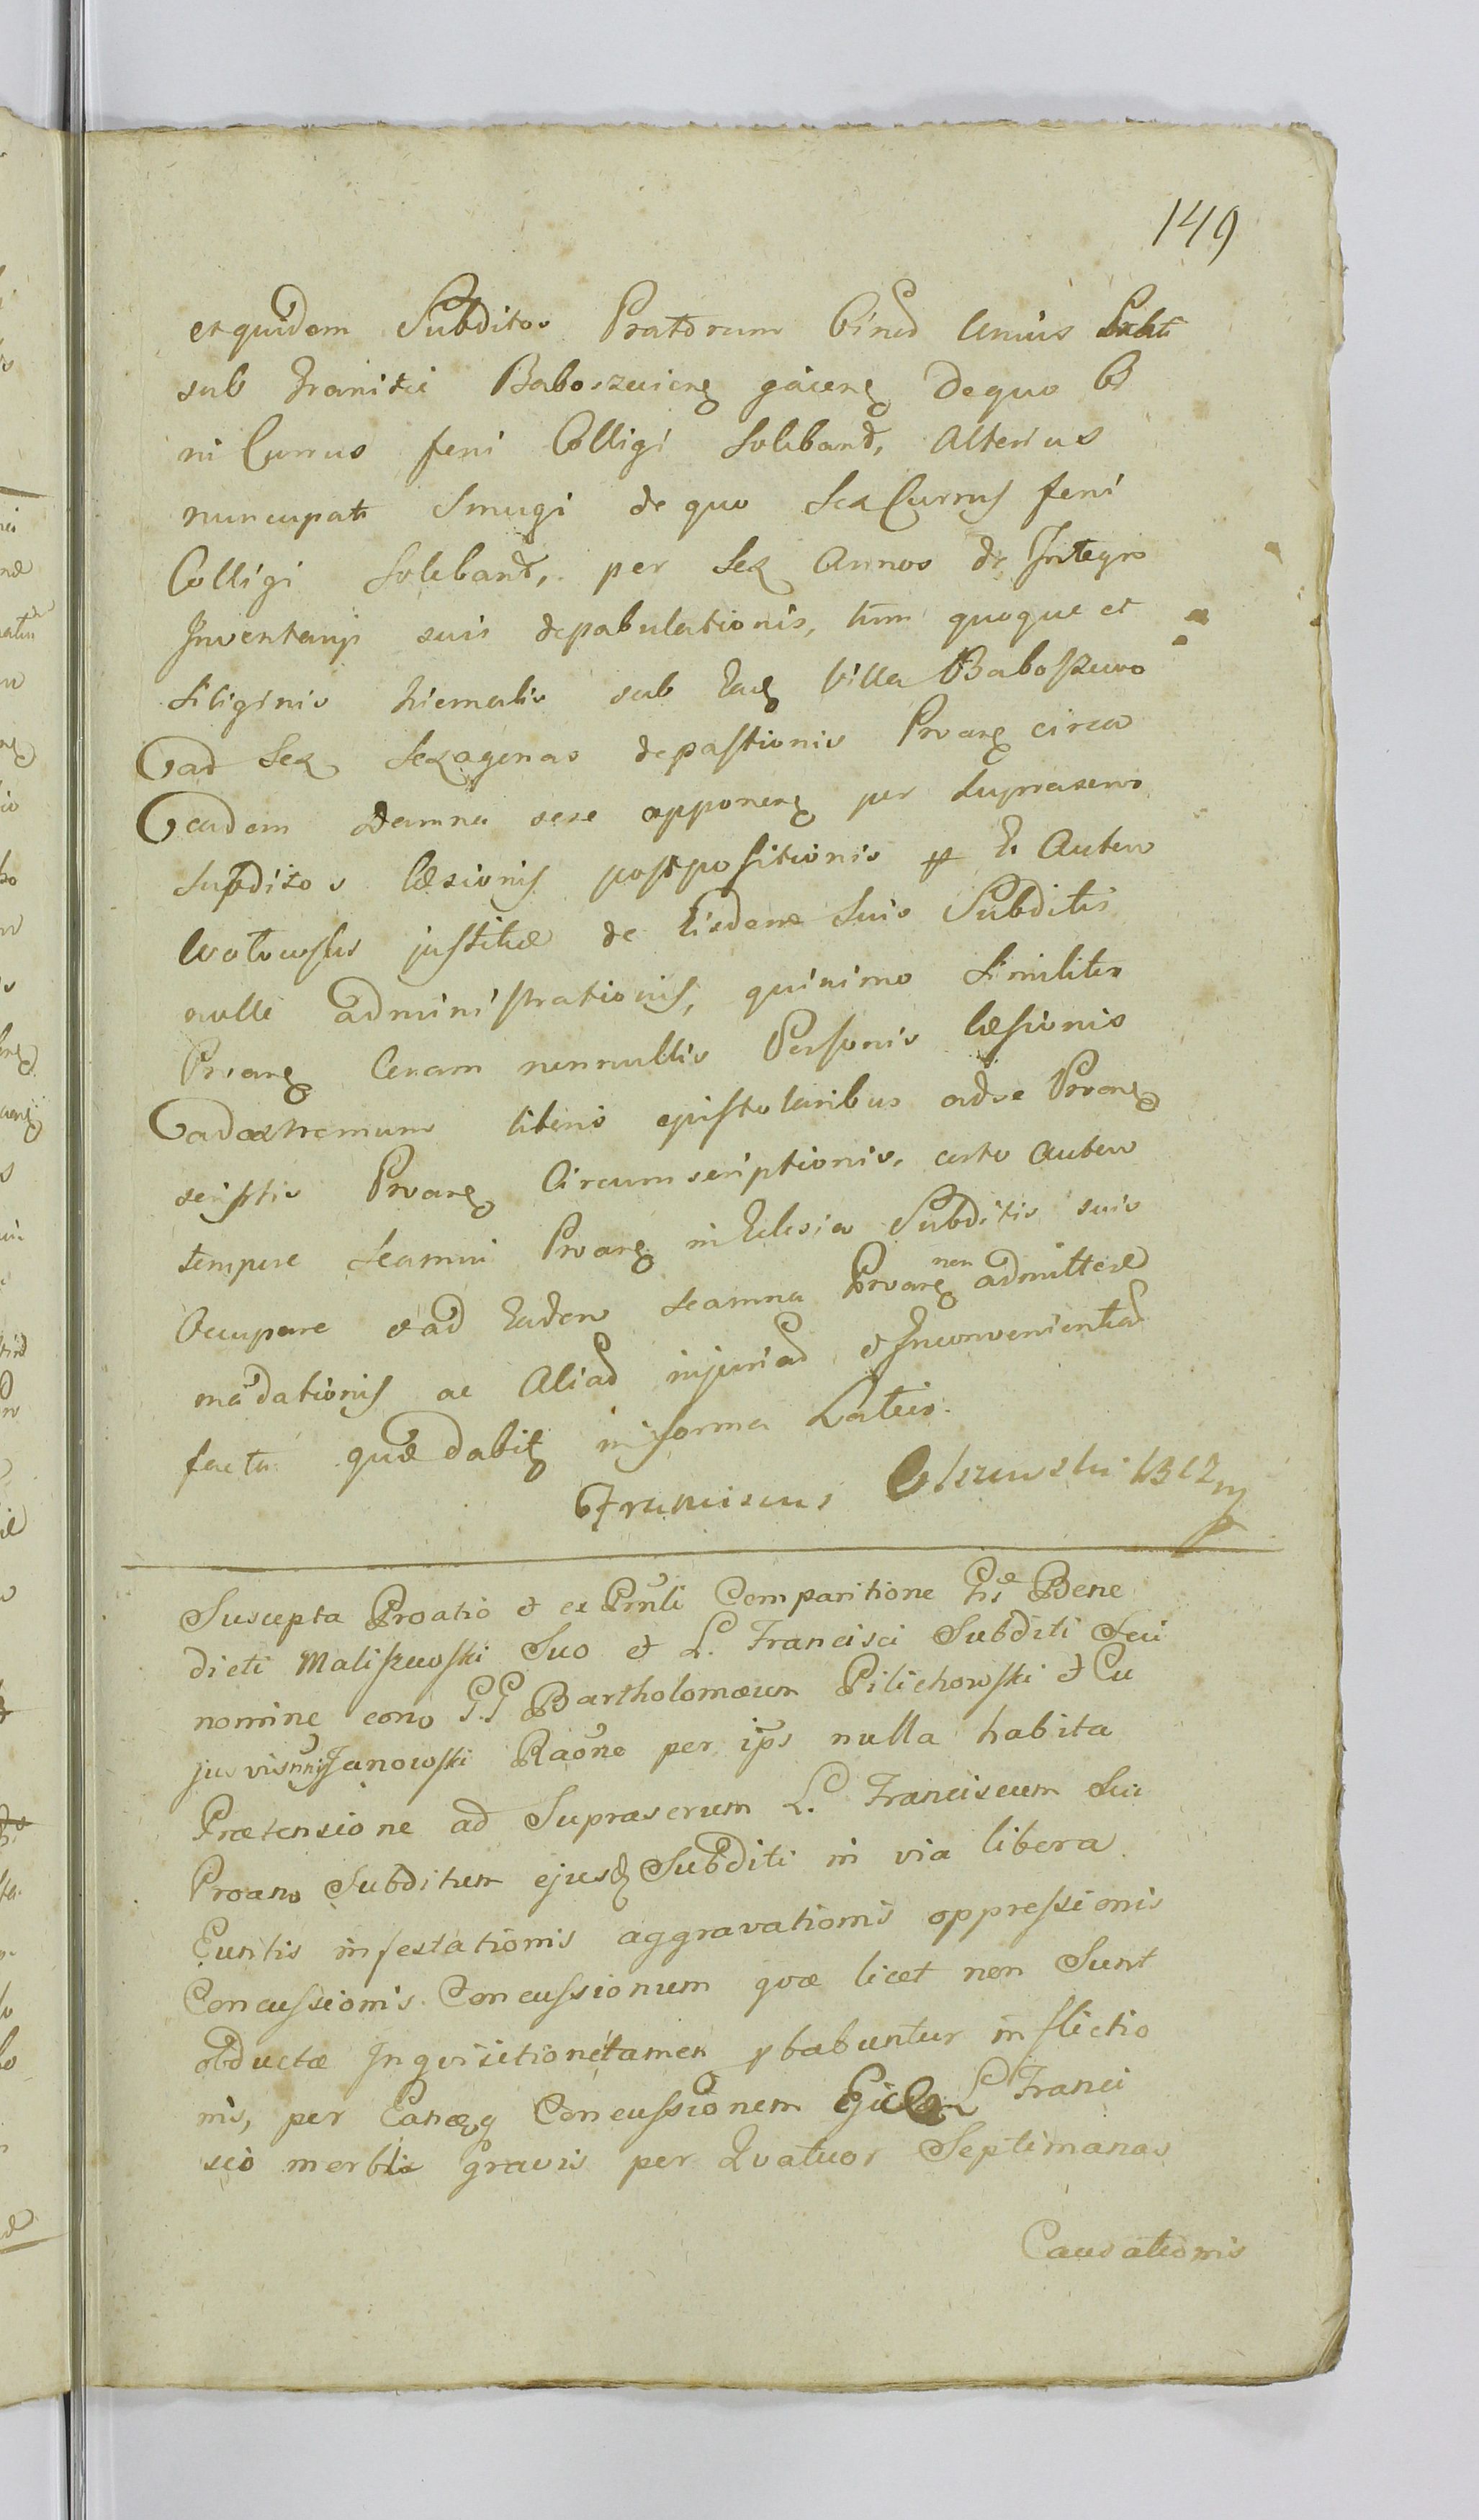 149
et quidem Subditos Pratorum binor̃ Unius
sub Granitie Baboszevien̨ jacen̨ de quo Bi
ni Currus feni Colligi Solebant, Alterius
nuncupati Smugi de quo Sex Currus feni
Colligi Solebant, per Sex Annos de Integro
Inventarys suis depabulationis, tum quoque et
Siliginis hiemalis sub ead̨ Villa Baboszewo
ad Sex Sexagenas depastionis Proan̨ circa
eadem Damna sese opponen̨ per Supraseros
Subditos læsionis postpositionis p E. Autem
Wotowski justitiæ de Eisdem Suis Subditis
nulle administrationis, quinimo Similiter
Proan̨ Coram nonnullis Personis læsionis
ad extremum literis epistolaribus ad se Proan̨
scriptis Proan̨ Circumscriptionis, certo Autem
tempore Scamni Proan̨ in Eclesia Subditis suis
Occupare et ad Eadem Scamna Proan̨ non admittere
mãdationis ac Aliar̃ injuriar̃ et Inconvenientiar̃
facta quæ dabit̨ in forma Latius.
Franciscus Olszewski BCZ mp
Suscepta Proatio et ex Prnli Comparitione Gsi Bene
dicti Maliszewski Suo et L. Francisci Subditi Sui
nomine cono G.G Bartholomæum Pilichowski et Cu
jusvis nnis Janowski Raõne per ips nulla habita
Prætensione ad Supraserum L. Franciscum Sui
Proano Subditum ejusd̨ Subditi in via libera
Euntis infestationis aggravationis oppressionis
Concussionis Concussionum quæ licet non Sunt
obductæ Inquisitione tamen pbabuntur inflictio
nis, per Eamq̨ Concussionem L Franci
sco morbi gravis per Quatuor Septimanas
Causationis